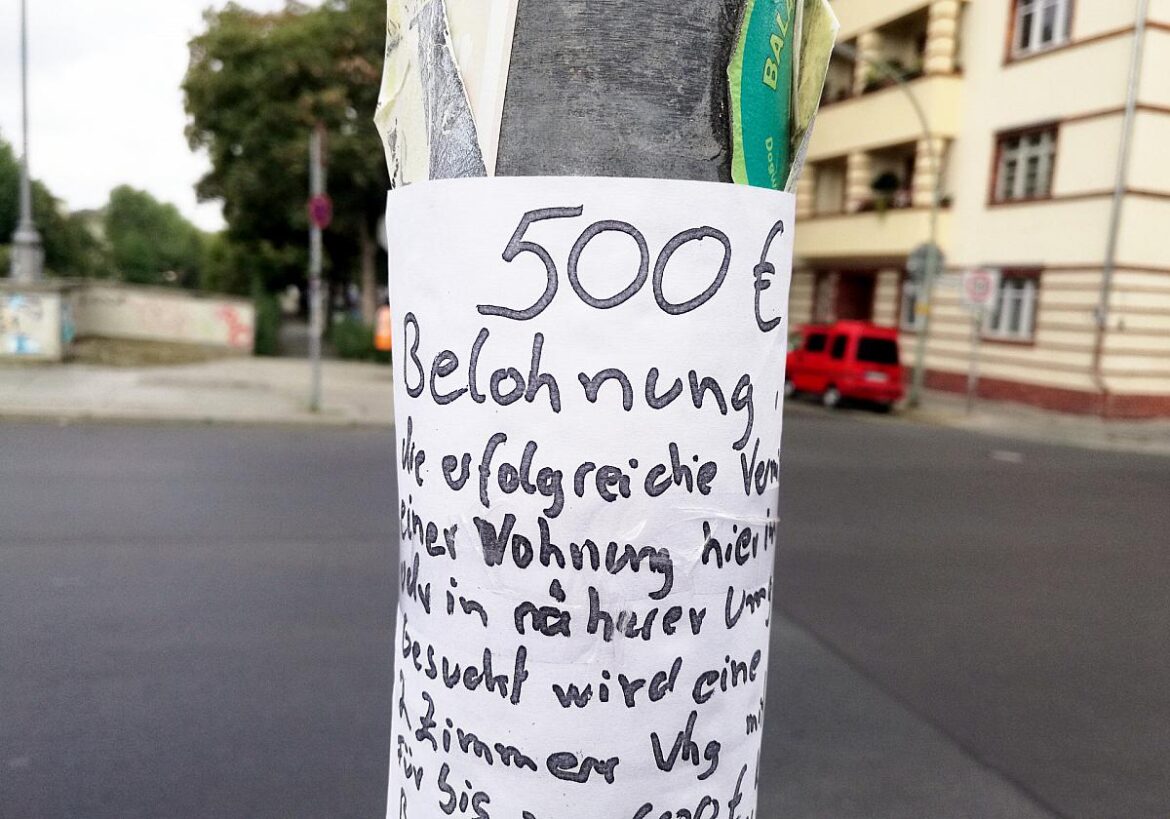 BAL
500 €
Belohnung,
die erfolgreiche
einer Wohnung hier in
oder in näherer
Gesucht wird eine
2 Zimmer Whg
Für bis